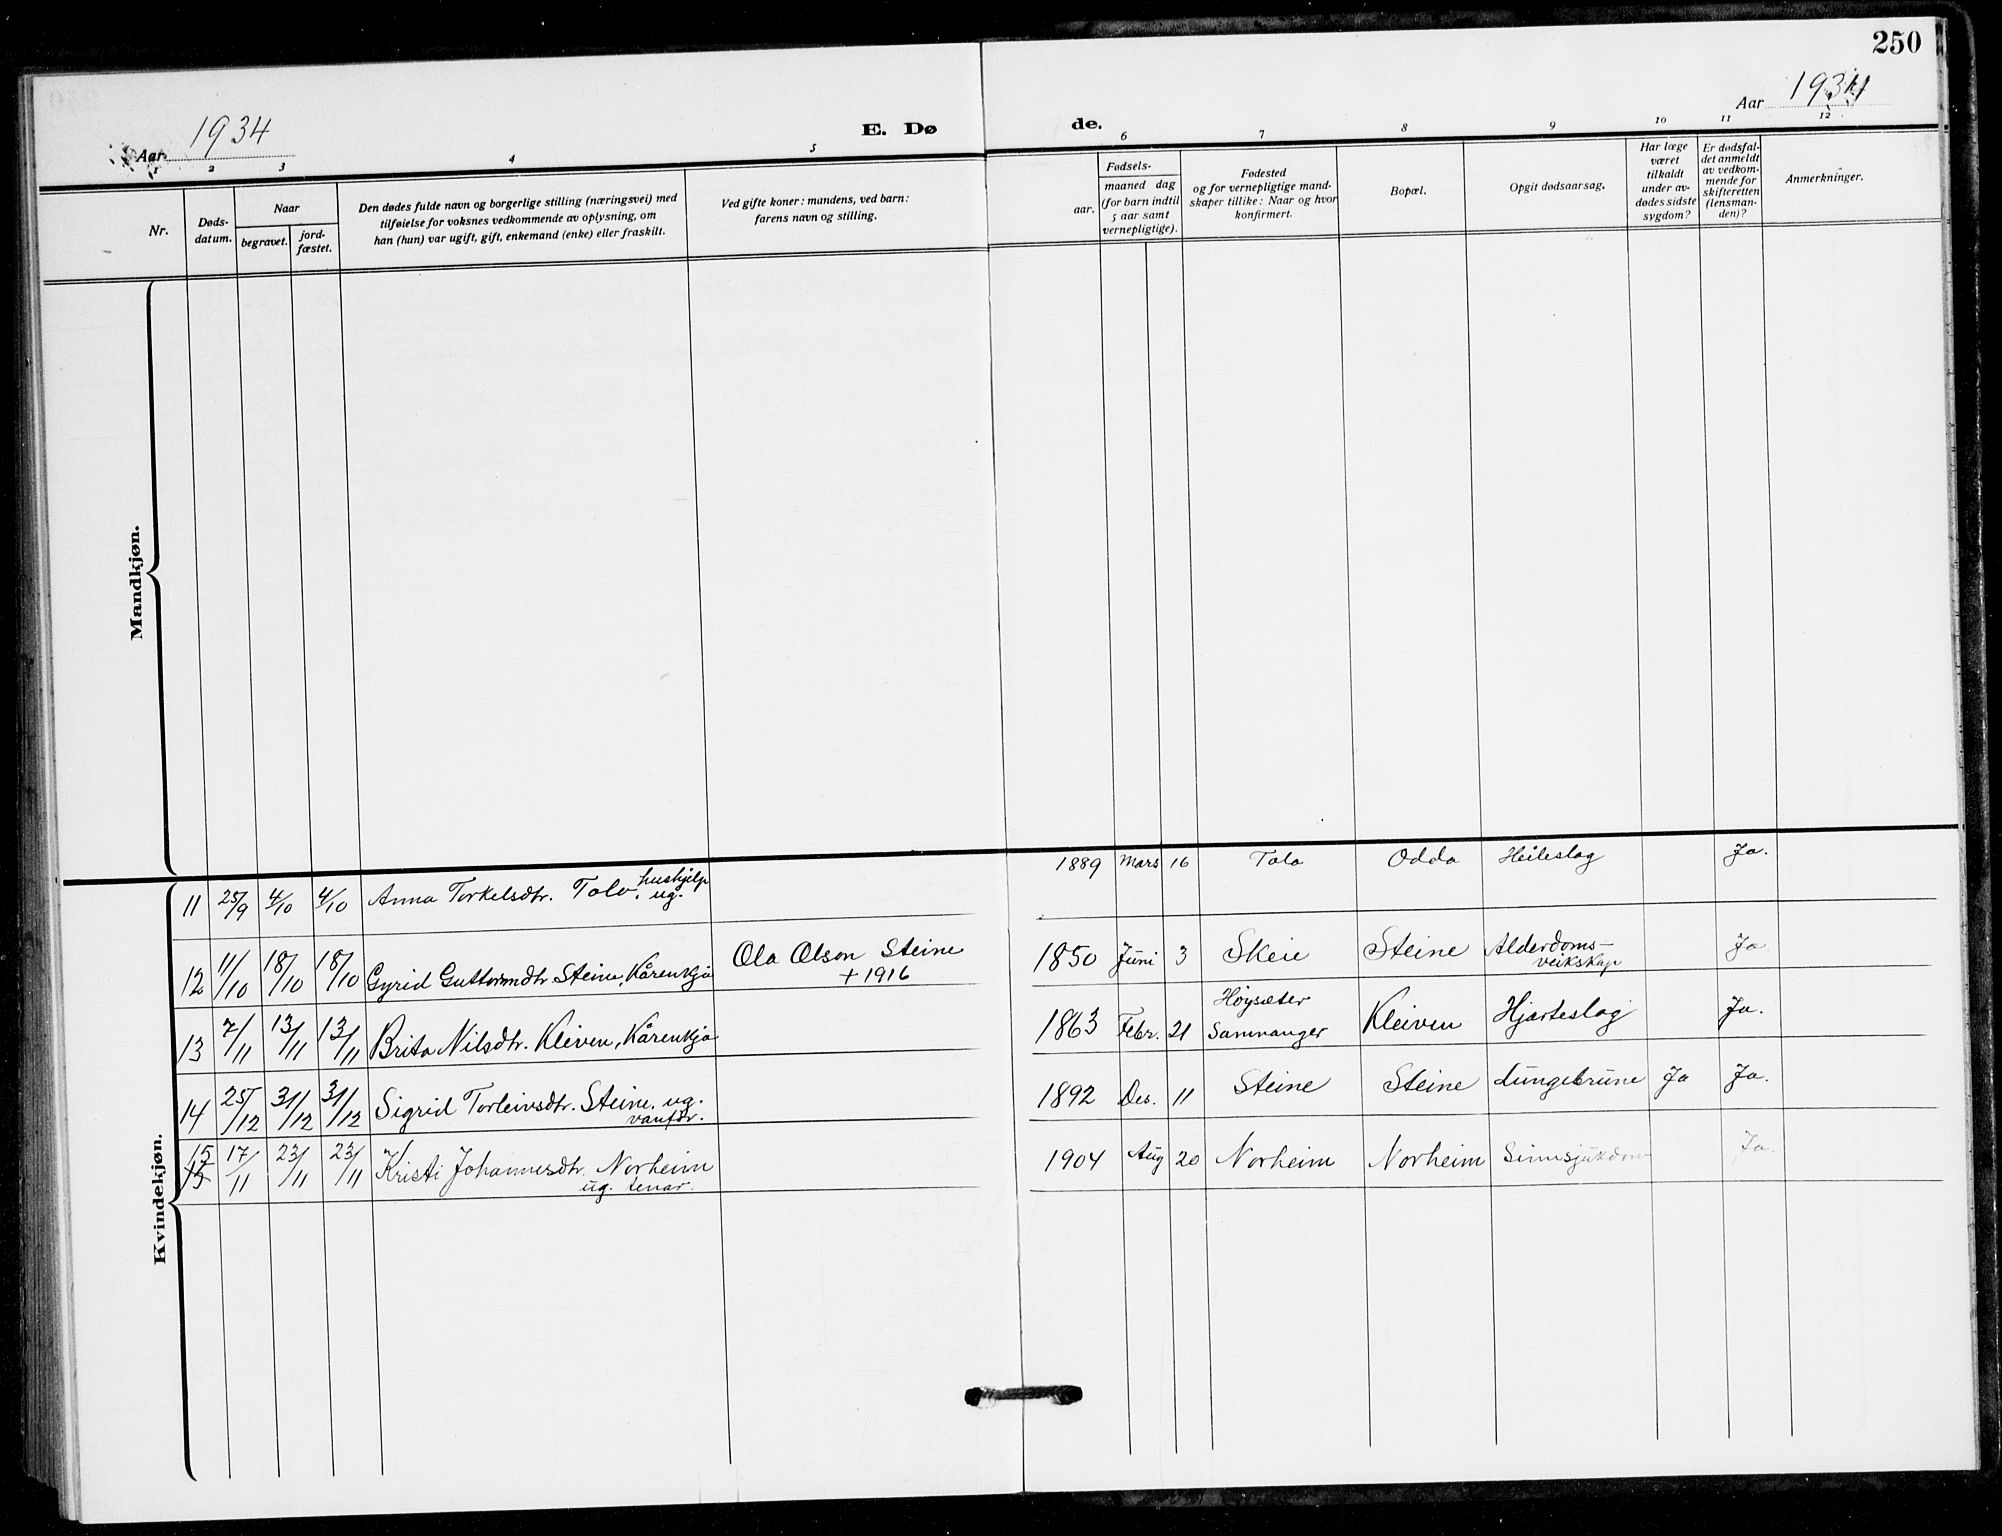 250
Aar 1934
E. Dø
de.
Aar 1934
1 2 3 4 5 6 7 8 9 10 11 12
Nr.
Døds-
datum.
Naar
begravet.
jord-
fæstet.
Den dødes fulde navn og borgerlige stilling (næringsvei) med
tilføielse for voksnes vedkommende av oplysning, om
han (hun) var ugift, gift, enkemand (enke) eller fraskilt.
Ved gifte koner: mandens, ved barn:
farens navn og stilling.
Fødsels-
aar.
maaned dag
(for barn indtil
5 aar samt
vernepligtige).
Fødested
og for vernepligtige mand-
skaper tillike: Naar og hvor
konfirmert.
Bopæl.
Opgit dødsaarsag.
Har læge
været
tilkaldt
under av-
dødes sidste
sygdom?
Er dødsfal-
det anmeldt
av vedkom-
mende for
skifteretten
(lensman-
den)?
Anmerkninger.
Mandkjøn.
Kvindekjøn.
11 25/9 4/10 4/10 Anna Torkelsdtr. Tolo, hushjelp ug. 1889 Mars 16 Tolo Odda Heileslag Ja.
12 11/10 18/10 18/10 Gyrid Guttormdtr Steine, Kårenkja Ola Olson Steine 1850 Juni 3 Skeie Steine Alderdoms-
+ 1916 veikskap Ja
13 7/11 13/11 13/11 Brita Nilsdtr. Kleiven, Kårenkja 1863 Febr. 21 Høysæter
Samnanger Kleiven Hjarteslag Ja.
14 25/12 31/12 31/12 Sigrid Torleivsdtr. Steine. ug. 1892 Des. 11 Steine Steine Lungebrune Ja Ja.
vanför.
15 17/11 23/11 23/11 Kristi Johannesdtr. Norheim 1904 Aug 20 Norheim Norheim Sinnsjukdom Ja.
ug. tenar.